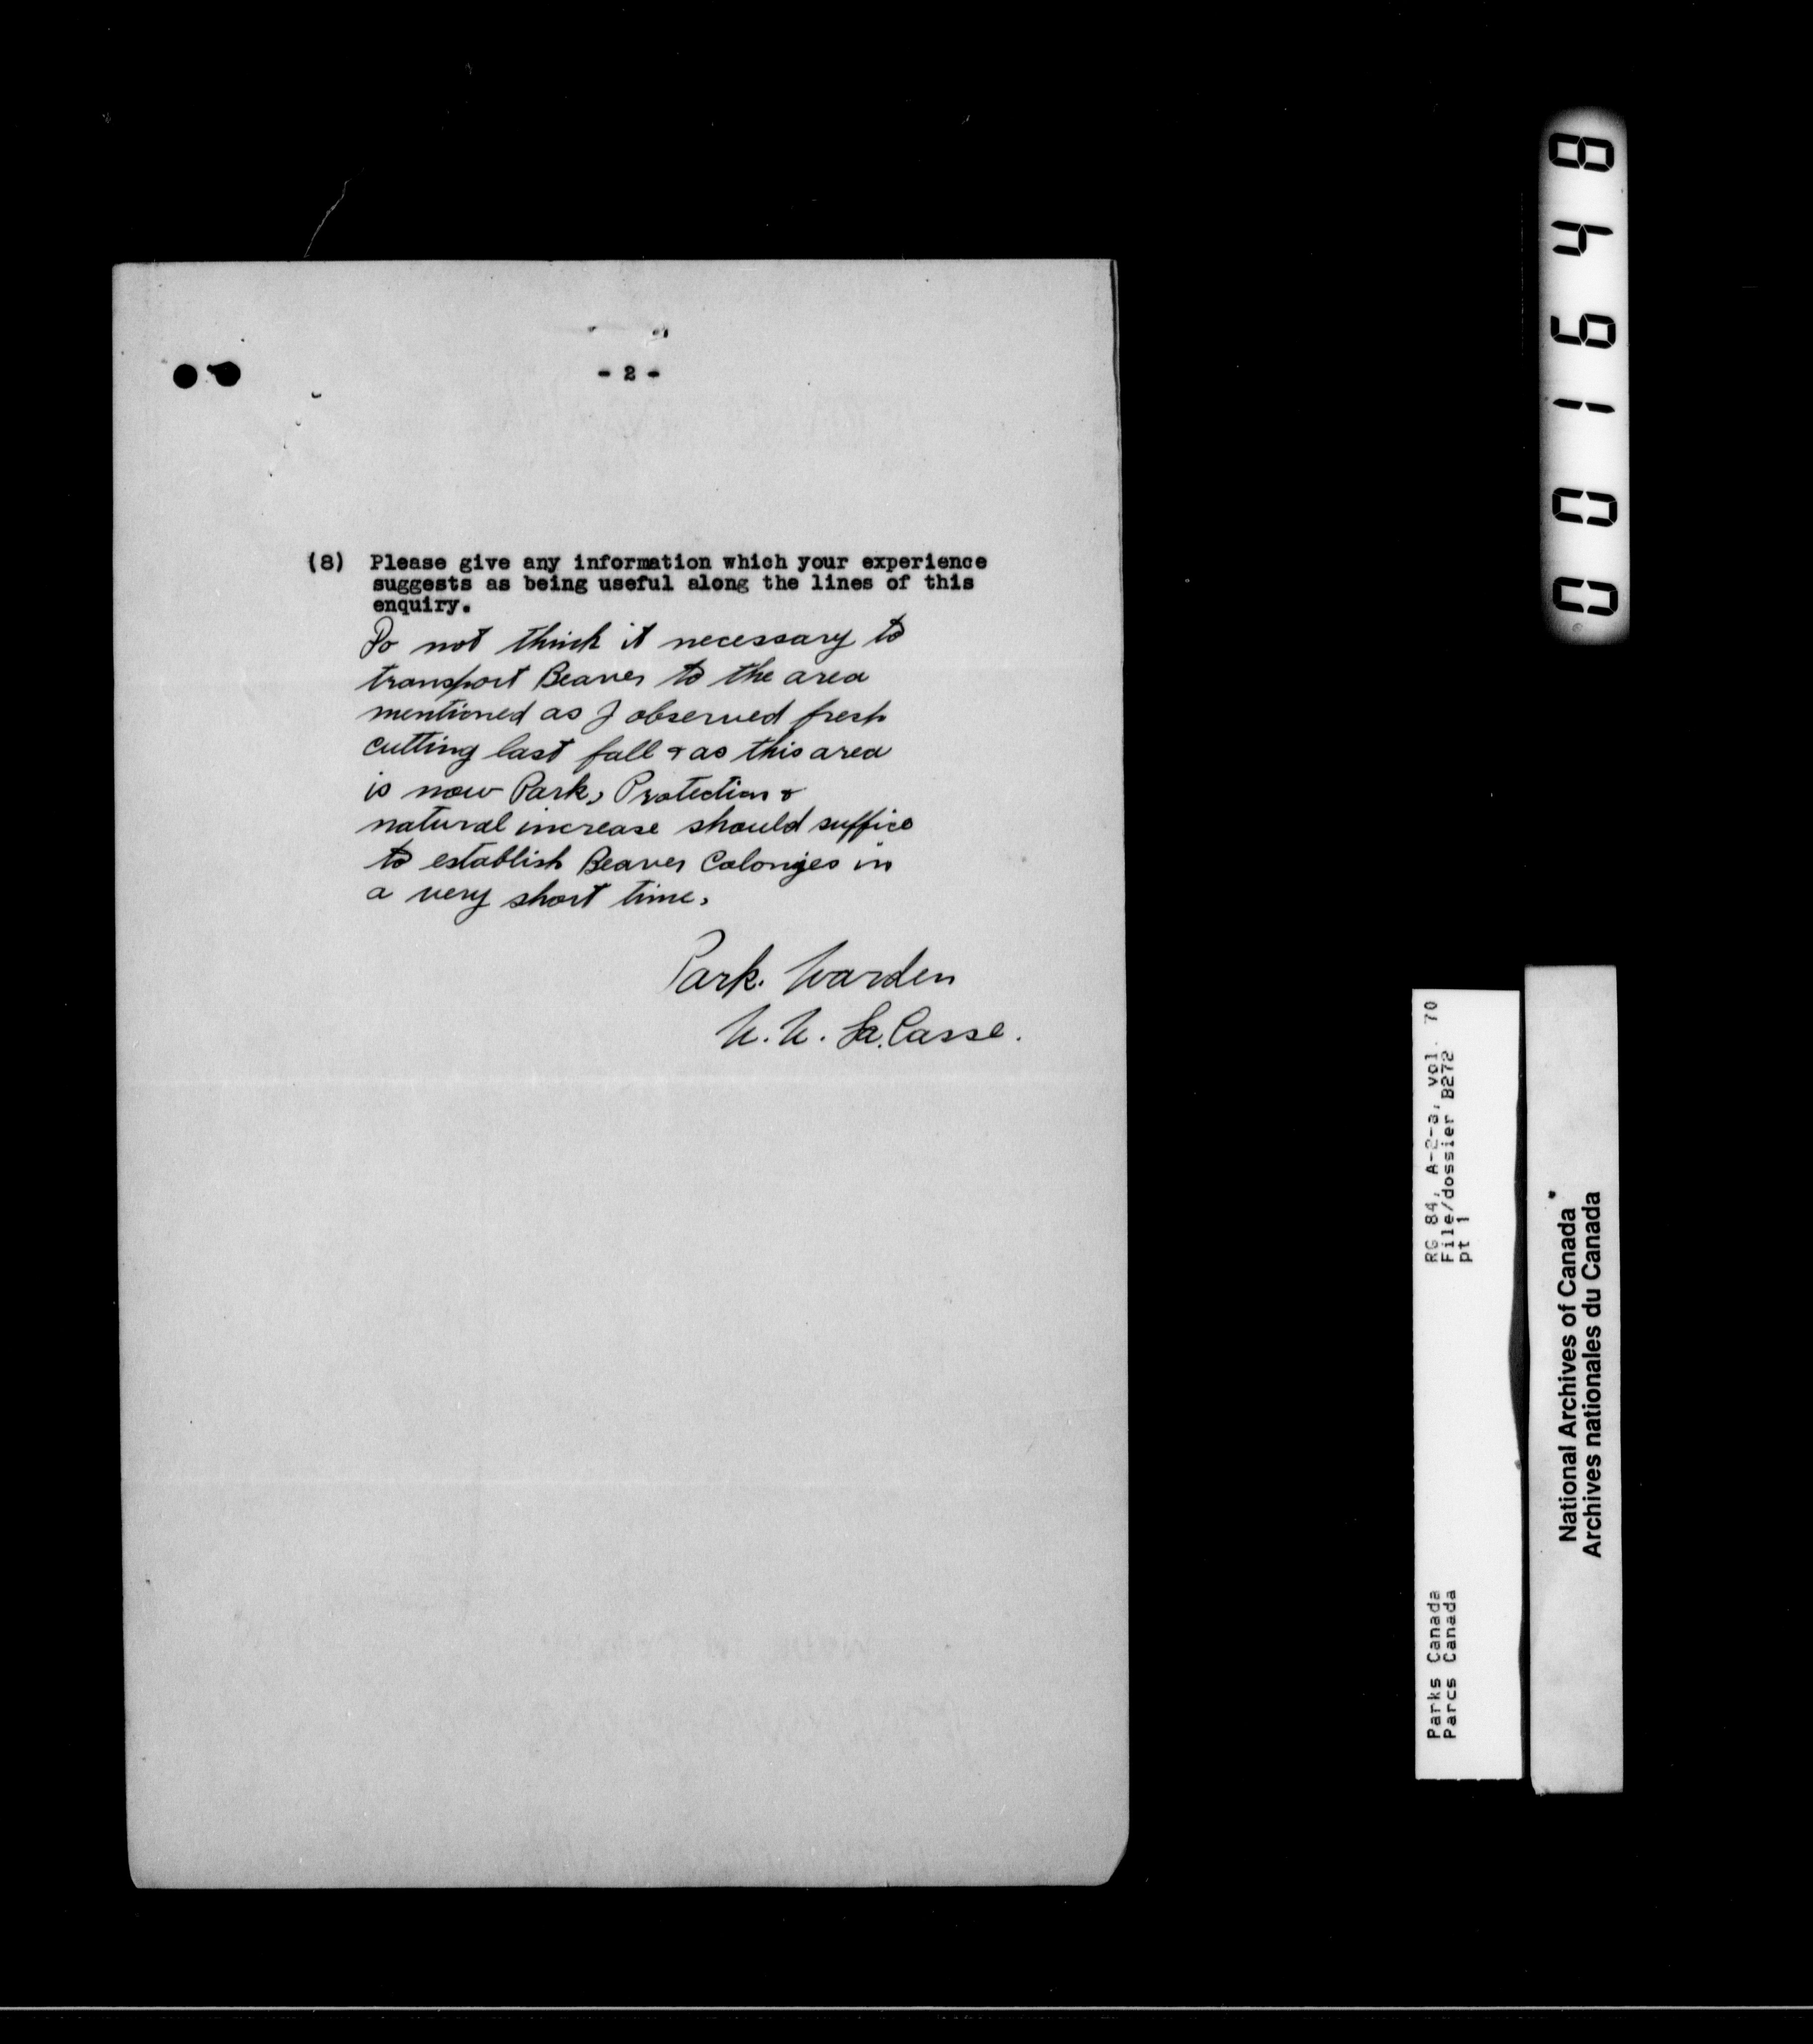 - 2 -
(8) Please give any information which your experience
suggests as being useful along the lines of this
enquiry.
Do not think it necessary to
transport Beaver to the area
mentioned as I observed fresh
cutting last fall & as this area
is now Park, Protection &
natural increase should suffice
to establish Beaver Colonies in
a very short time.
Park. Warden
W. W. La. Casse.
001648
RG 84, A-2-a, vol. 70
File/dossier B272
pt 1
Parks Canada
Parcs Canada
National Archives of Canada
Archives nationales du Canada